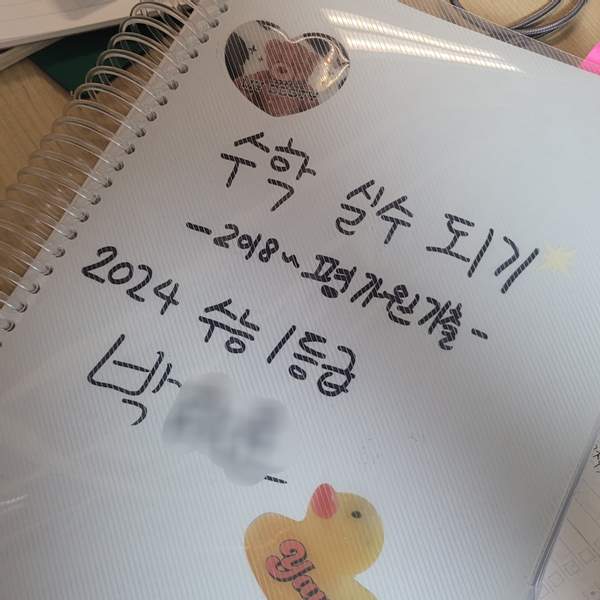 수학 실수 되기
-2018~평가원기출-
2024 수능 1등급
박